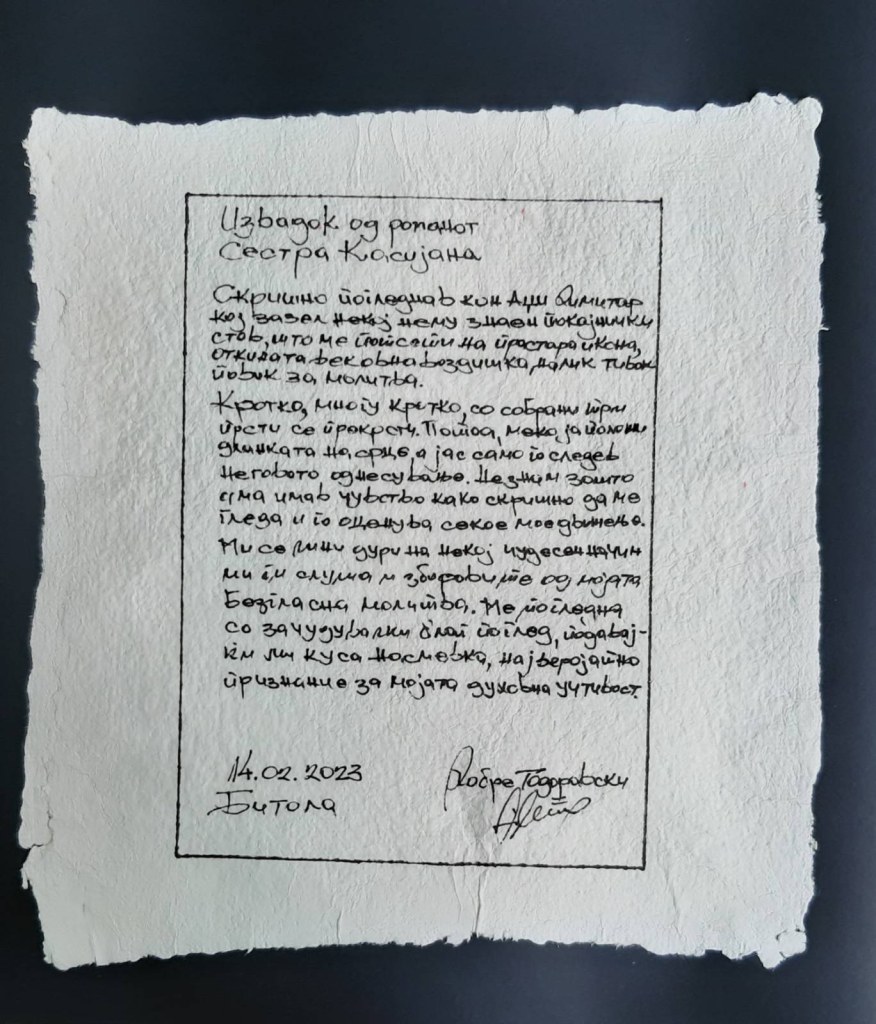 Извадок од романот
Сестра Касијана
Скришно погледнав кон Аџи Димитар
кој зазел некој нему знаен покајнички
став, што ме потсети на прастара икона,
откината вековна воздишка, налик тивок
повик за молитва.
Кротко, многу кротко, со собрани три
прсти се прекрсти. Потоа, меко ја положи
дланката на срце, а јас само го следев
неговото однесување. Незнам зошто
има имав чувство како скришно да ме
гледа и го оценува секое мое движење.
Ми се чини дури на некој чудесен начин
ми ги слуша и зборовите од мојата
безгласна молитва. Ме погледна
со зачудувачки благ поглед, подавај-
ќи ми куса насмевка, најверојатно
признание за мојата духовна учтивост.
14.02.2023
Битола
Добре Тодоровски